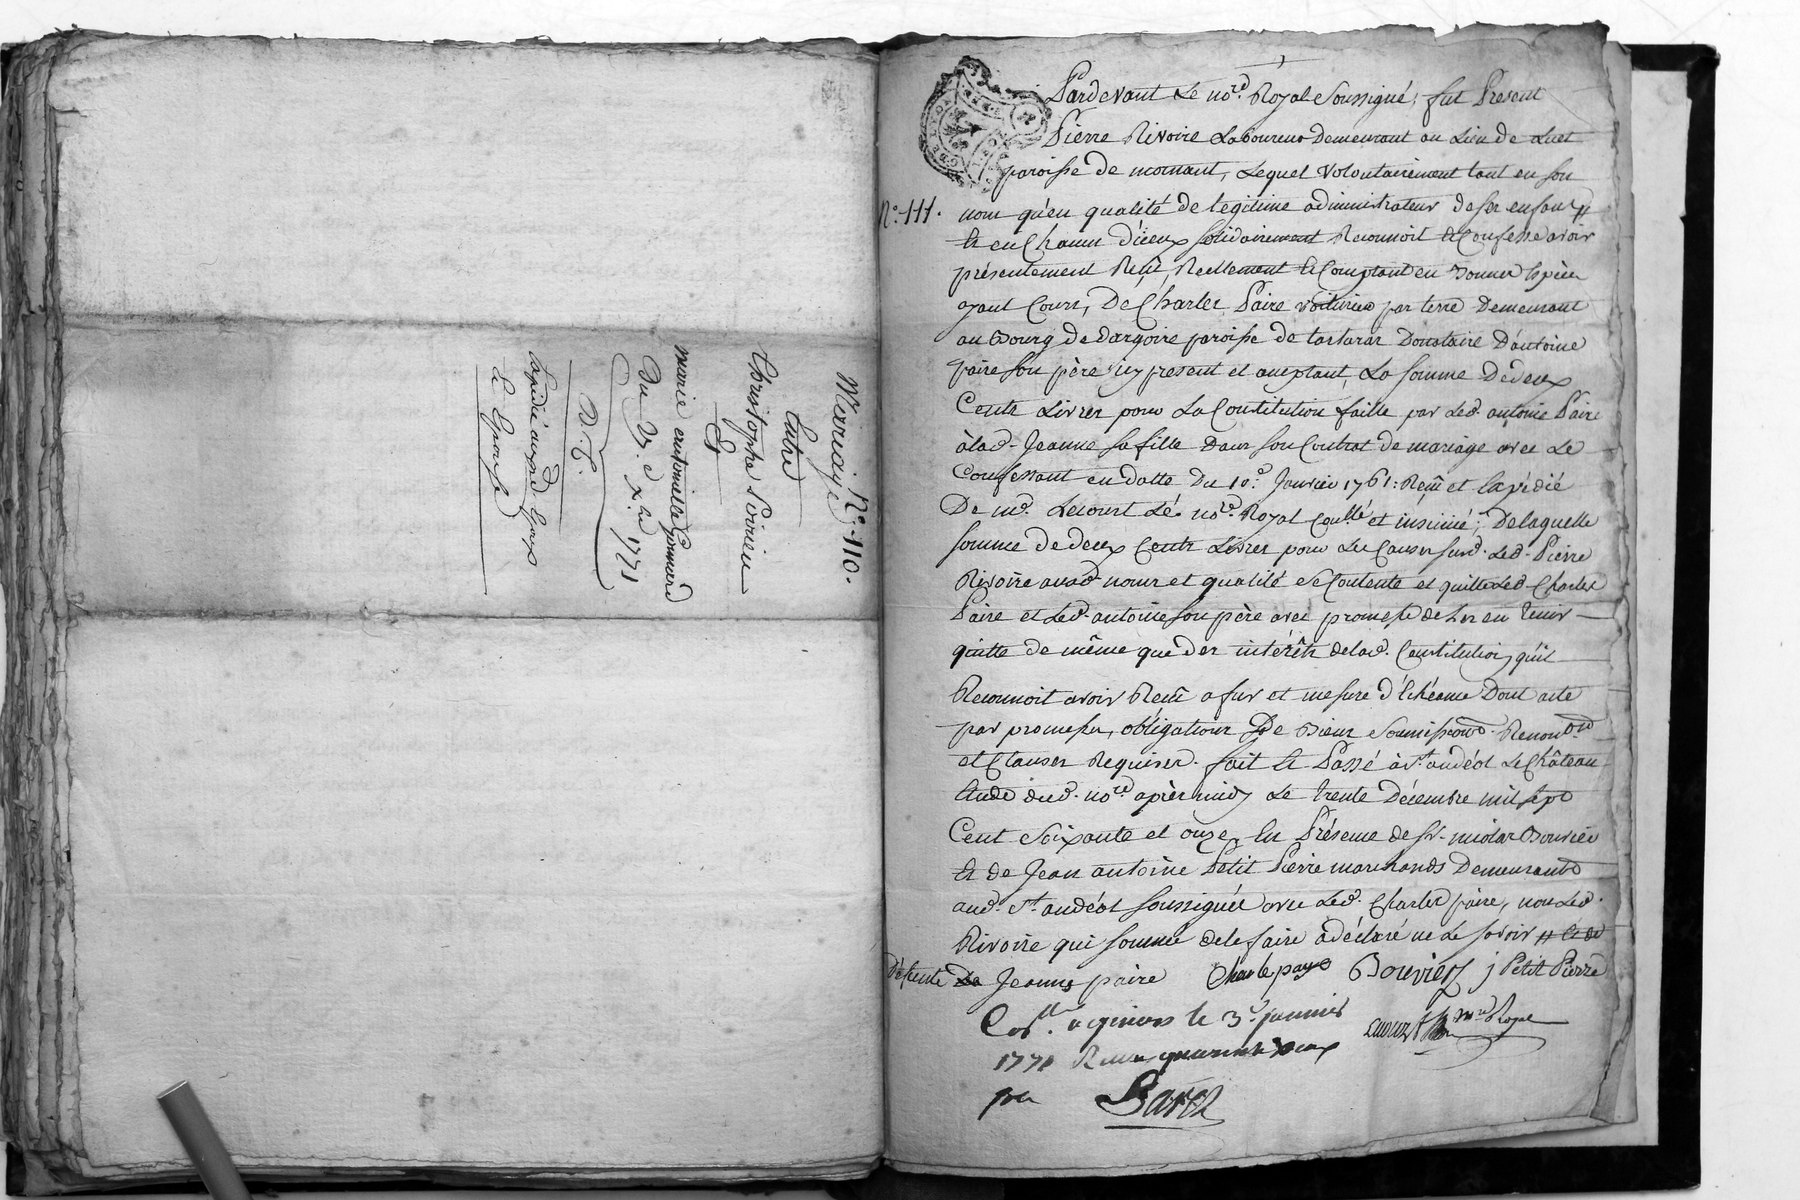 N.o 110.
Mariage
Entre
Christophe Poirieu
Et
marie antoinette
Du 1771
Expédié aud. Epoux
& Epouse
Pardevant Le no.re Royal Soussigné, fut Présent
Pierre Rivoire Laboureur Demeurant au Lieu de Luet
paroisse de mornant, Lequel volontairement tant en son
N.o 111.
nom qu'en qualité de legitime administrateur de ses enfans //
Et en Chacun d'iceux solidairement Reconnoit & Confesse avoir
présentement Reçu, Reellement & Comptant en bonnes Espèces
ayant Cours, De Charles Paire voiturier par terre Demeurant
au Bourg de dargoire paroisse de tartaras Donataire D'antoine
paire son père icy présent et aceptant, La somme De deux
Cents Livres pour La Constitution faitte par Led. antoine Paire
à lad. Jeanne sa fille Dans son Contrat de mariage avec Le
Confessant en datte Du 10.e Janvier 1761: Reçu et Expédié
De m.e Lecourt Lé no.re Royal Con.llé et insinué; De laquelle
somme de deux Cents Livres pour Les Causes susd. Led. Pierre
Rivoire auxd. noms et qualité se Contente et quitte Led. Charles
Paire et Led. antoine son père avec promesse de les en tenir
quitte de même que des intérêts de lad. Constitution, qu'il
Reconnoit avoir Reçu a fur et mesure d'Echéance Dont acte
par promesses, obligations De Biens Soumissions Renon.on
et Clauses Requises. fait & Passé à S.t andéol Le Château
Etude dud. no.re après midy Le trente Décembre mil sept
Cent Soixante et onze En Présence de Sr. nicolas Bouvier
& de Jean antoine Petit Pierre marchands Demeurants
aud. S.t andéol soussignés avec Led. Charles paire, non Led.
Rivoire qui sommé de le faire a déclaré ne Le savoir // & de
Défunte Jeanne paire Charle paye Bouvier j Petit Pierre
Con.llé a givors le 3.e janvier
1771 Reçu quarante deux
no.re Royal
par